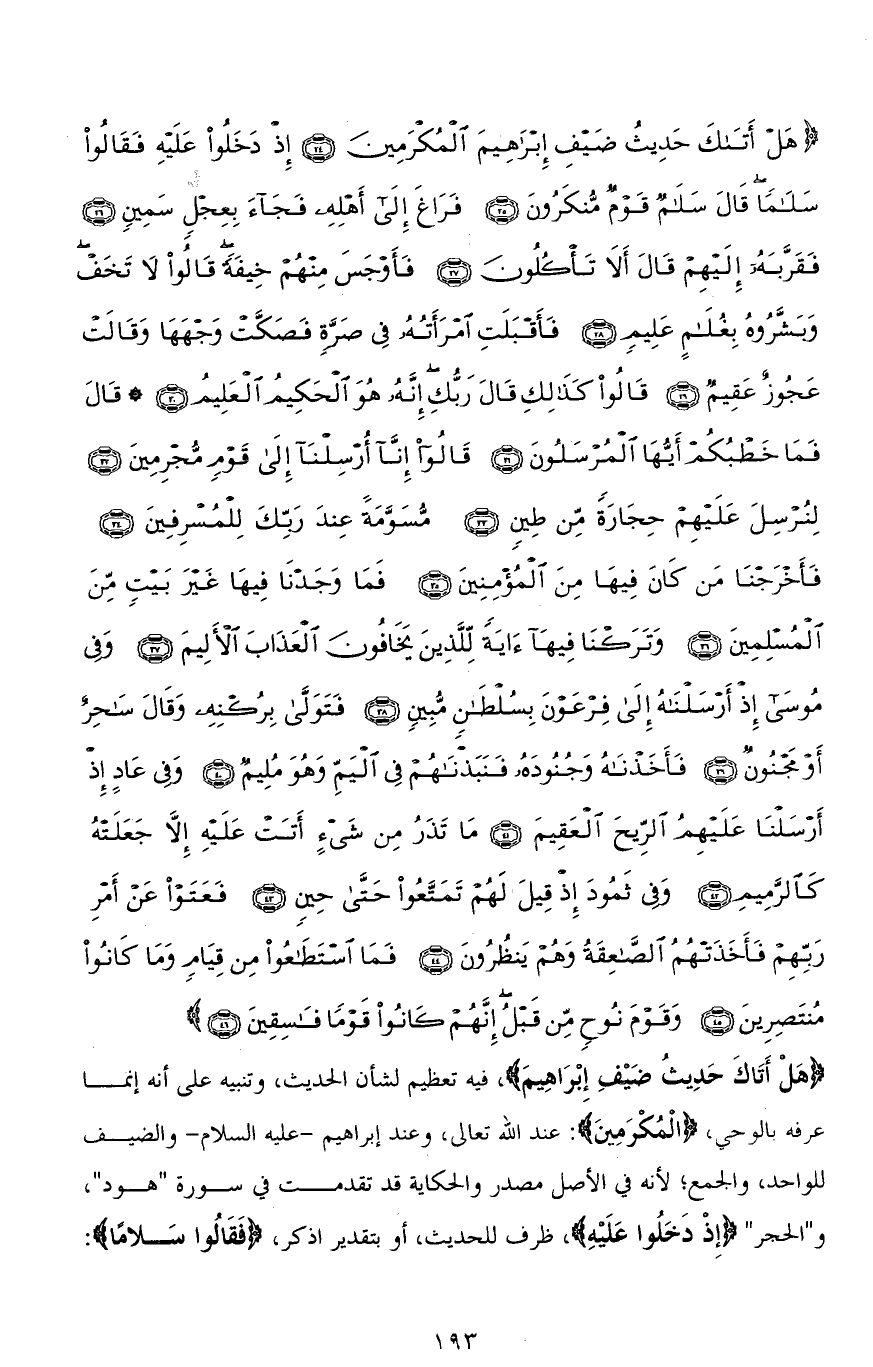 ﴿ هَلْ أَتَىٰكَ حَدِيثُ ضَيْفِ إِبْرَٰهِيمَ ٱلْمُكْرَمِينَ ۝٢٤ إِذْ دَخَلُوا۟ عَلَيْهِ فَقَالُوا۟
سَلَـٰمًا ۖ قَالَ سَلَـٰمٌ قَوْمٌ مُّنكَرُونَ ۝٢٥ فَرَاغَ إِلَىٰٓ أَهْلِهِۦ فَجَآءَ بِعِجْلٍ سَمِينٍ ۝٢٦
فَقَرَّبَهُۥٓ إِلَيْهِمْ قَالَ أَلَا تَأْكُلُونَ ۝٢٧ فَأَوْجَسَ مِنْهُمْ خِيفَةً ۖ قَالُوا۟ لَا تَخَفْ ۖ
وَبَشَّرُوهُ بِغُلَـٰمٍ عَلِيمٍ ۝٢٨ فَأَقْبَلَتِ ٱمْرَأَتُهُۥ فِى صَرَّةٍ فَصَكَّتْ وَجْهَهَا وَقَالَتْ
عَجُوزٌ عَقِيمٌ ۝٢٩ قَالُوا۟ كَذَٰلِكِ قَالَ رَبُّكِ ۖ إِنَّهُۥ هُوَ ٱلْحَكِيمُ ٱلْعَلِيمُ ۝٣٠ * قَالَ
فَمَا خَطْبُكُمْ أَيُّهَا ٱلْمُرْسَلُونَ ۝٣١ قَالُوٓا۟ إِنَّآ أُرْسِلْنَآ إِلَىٰ قَوْمٍ مُّجْرِمِينَ ۝٣٢
لِنُرْسِلَ عَلَيْهِمْ حِجَارَةً مِّن طِينٍ ۝٣٣ مُّسَوَّمَةً عِندَ رَبِّكَ لِلْمُسْرِفِينَ ۝٣٤
فَأَخْرَجْنَا مَن كَانَ فِيهَا مِنَ ٱلْمُؤْمِنِينَ ۝٣٥ فَمَا وَجَدْنَا فِيهَا غَيْرَ بَيْتٍ مِّنَ
ٱلْمُسْلِمِينَ ۝٣٦ وَتَرَكْنَا فِيهَآ ءَايَةً لِّلَّذِينَ يَخَافُونَ ٱلْعَذَابَ ٱلْأَلِيمَ ۝٣٧ وَفِى
مُوسَىٰٓ إِذْ أَرْسَلْنَـٰهُ إِلَىٰ فِرْعَوْنَ بِسُلْطَـٰنٍ مُّبِينٍ ۝٣٨ فَتَوَلَّىٰ بِرُكْنِهِۦ وَقَالَ سَـٰحِرٌ
أَوْ مَجْنُونٌ ۝٣٩ فَأَخَذْنَـٰهُ وَجُنُودَهُۥ فَنَبَذْنَـٰهُمْ فِى ٱلْيَمِّ وَهُوَ مُلِيمٌ ۝٤٠ وَفِى عَادٍ إِذْ
أَرْسَلْنَا عَلَيْهِمُ ٱلرِّيحَ ٱلْعَقِيمَ ۝٤١ مَا تَذَرُ مِن شَىْءٍ أَتَتْ عَلَيْهِ إِلَّا جَعَلَتْهُ
كَٱلرَّمِيمِ ۝٤٢ وَفِى ثَمُودَ إِذْ قِيلَ لَهُمْ تَمَتَّعُوا۟ حَتَّىٰ حِينٍ ۝٤٣ فَعَتَوْا۟ عَنْ أَمْرِ
رَبِّهِمْ فَأَخَذَتْهُمُ ٱلصَّـٰعِقَةُ وَهُمْ يَنظُرُونَ ۝٤٤ فَمَا ٱسْتَطَـٰعُوا۟ مِن قِيَامٍ وَمَا كَانُوا۟
مُنتَصِرِينَ ۝٤٥ وَقَوْمَ نُوحٍ مِّن قَبْلُ ۖ إِنَّهُمْ كَانُوا۟ قَوْمًا فَـٰسِقِينَ ۝٤٦ ﴾
﴿هَلْ أَتَاكَ حَدِيثُ ضَيْفِ إِبْرَاهِيمَ﴾، فيه تعظيم لشأن الحديث، وتنبيه على أنه إنمـــا
عرفه بالوحي، ﴿الْمُكْرَمِينَ﴾: عند الله تعالى، وعند إبراهيم -عليه السلام- والضيـــف
للواحد، والجمع؛ لأنه في الأصل مصدر والحكاية قد تقدمـــت في ســـورة "هـــود"،
و"الحجر" ﴿إِذْ دَخَلُوا عَلَيْهِ﴾، ظرف للحديث، أو بتقدير اذكر، ﴿فَقَالُوا سَـــلامًا﴾:
١٩٣